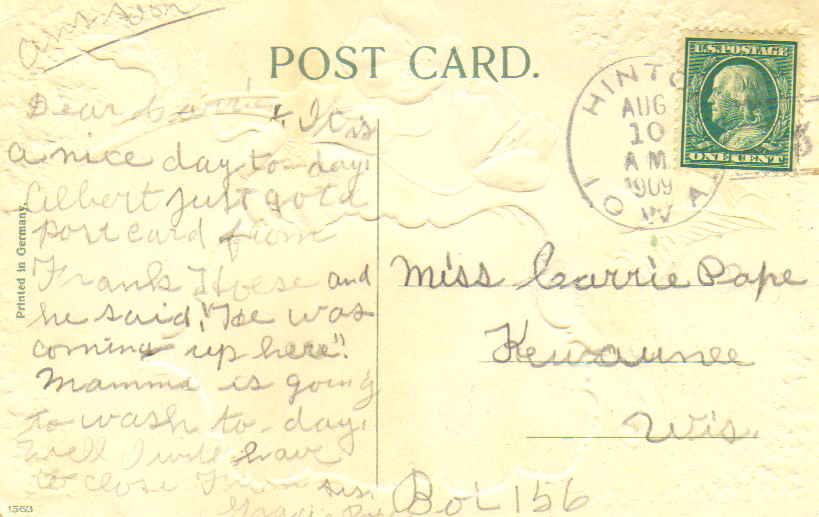 ans soon
POST CARD.
Dear Carrie, It is
a nice day to-day.
Albert just got a
post card from
Frank Hoese and
he said, "He was
coming up here".
Mamma is going
to wash to-day.
Well I will have
to close From sis.
Printed in Germany.
1563
HINTO
AUG
10
A M
1909
IOWA
U.S. POSTAGE
ONE CENT
Miss Carrie Pape
Kewaunee
Wis.
Box 156